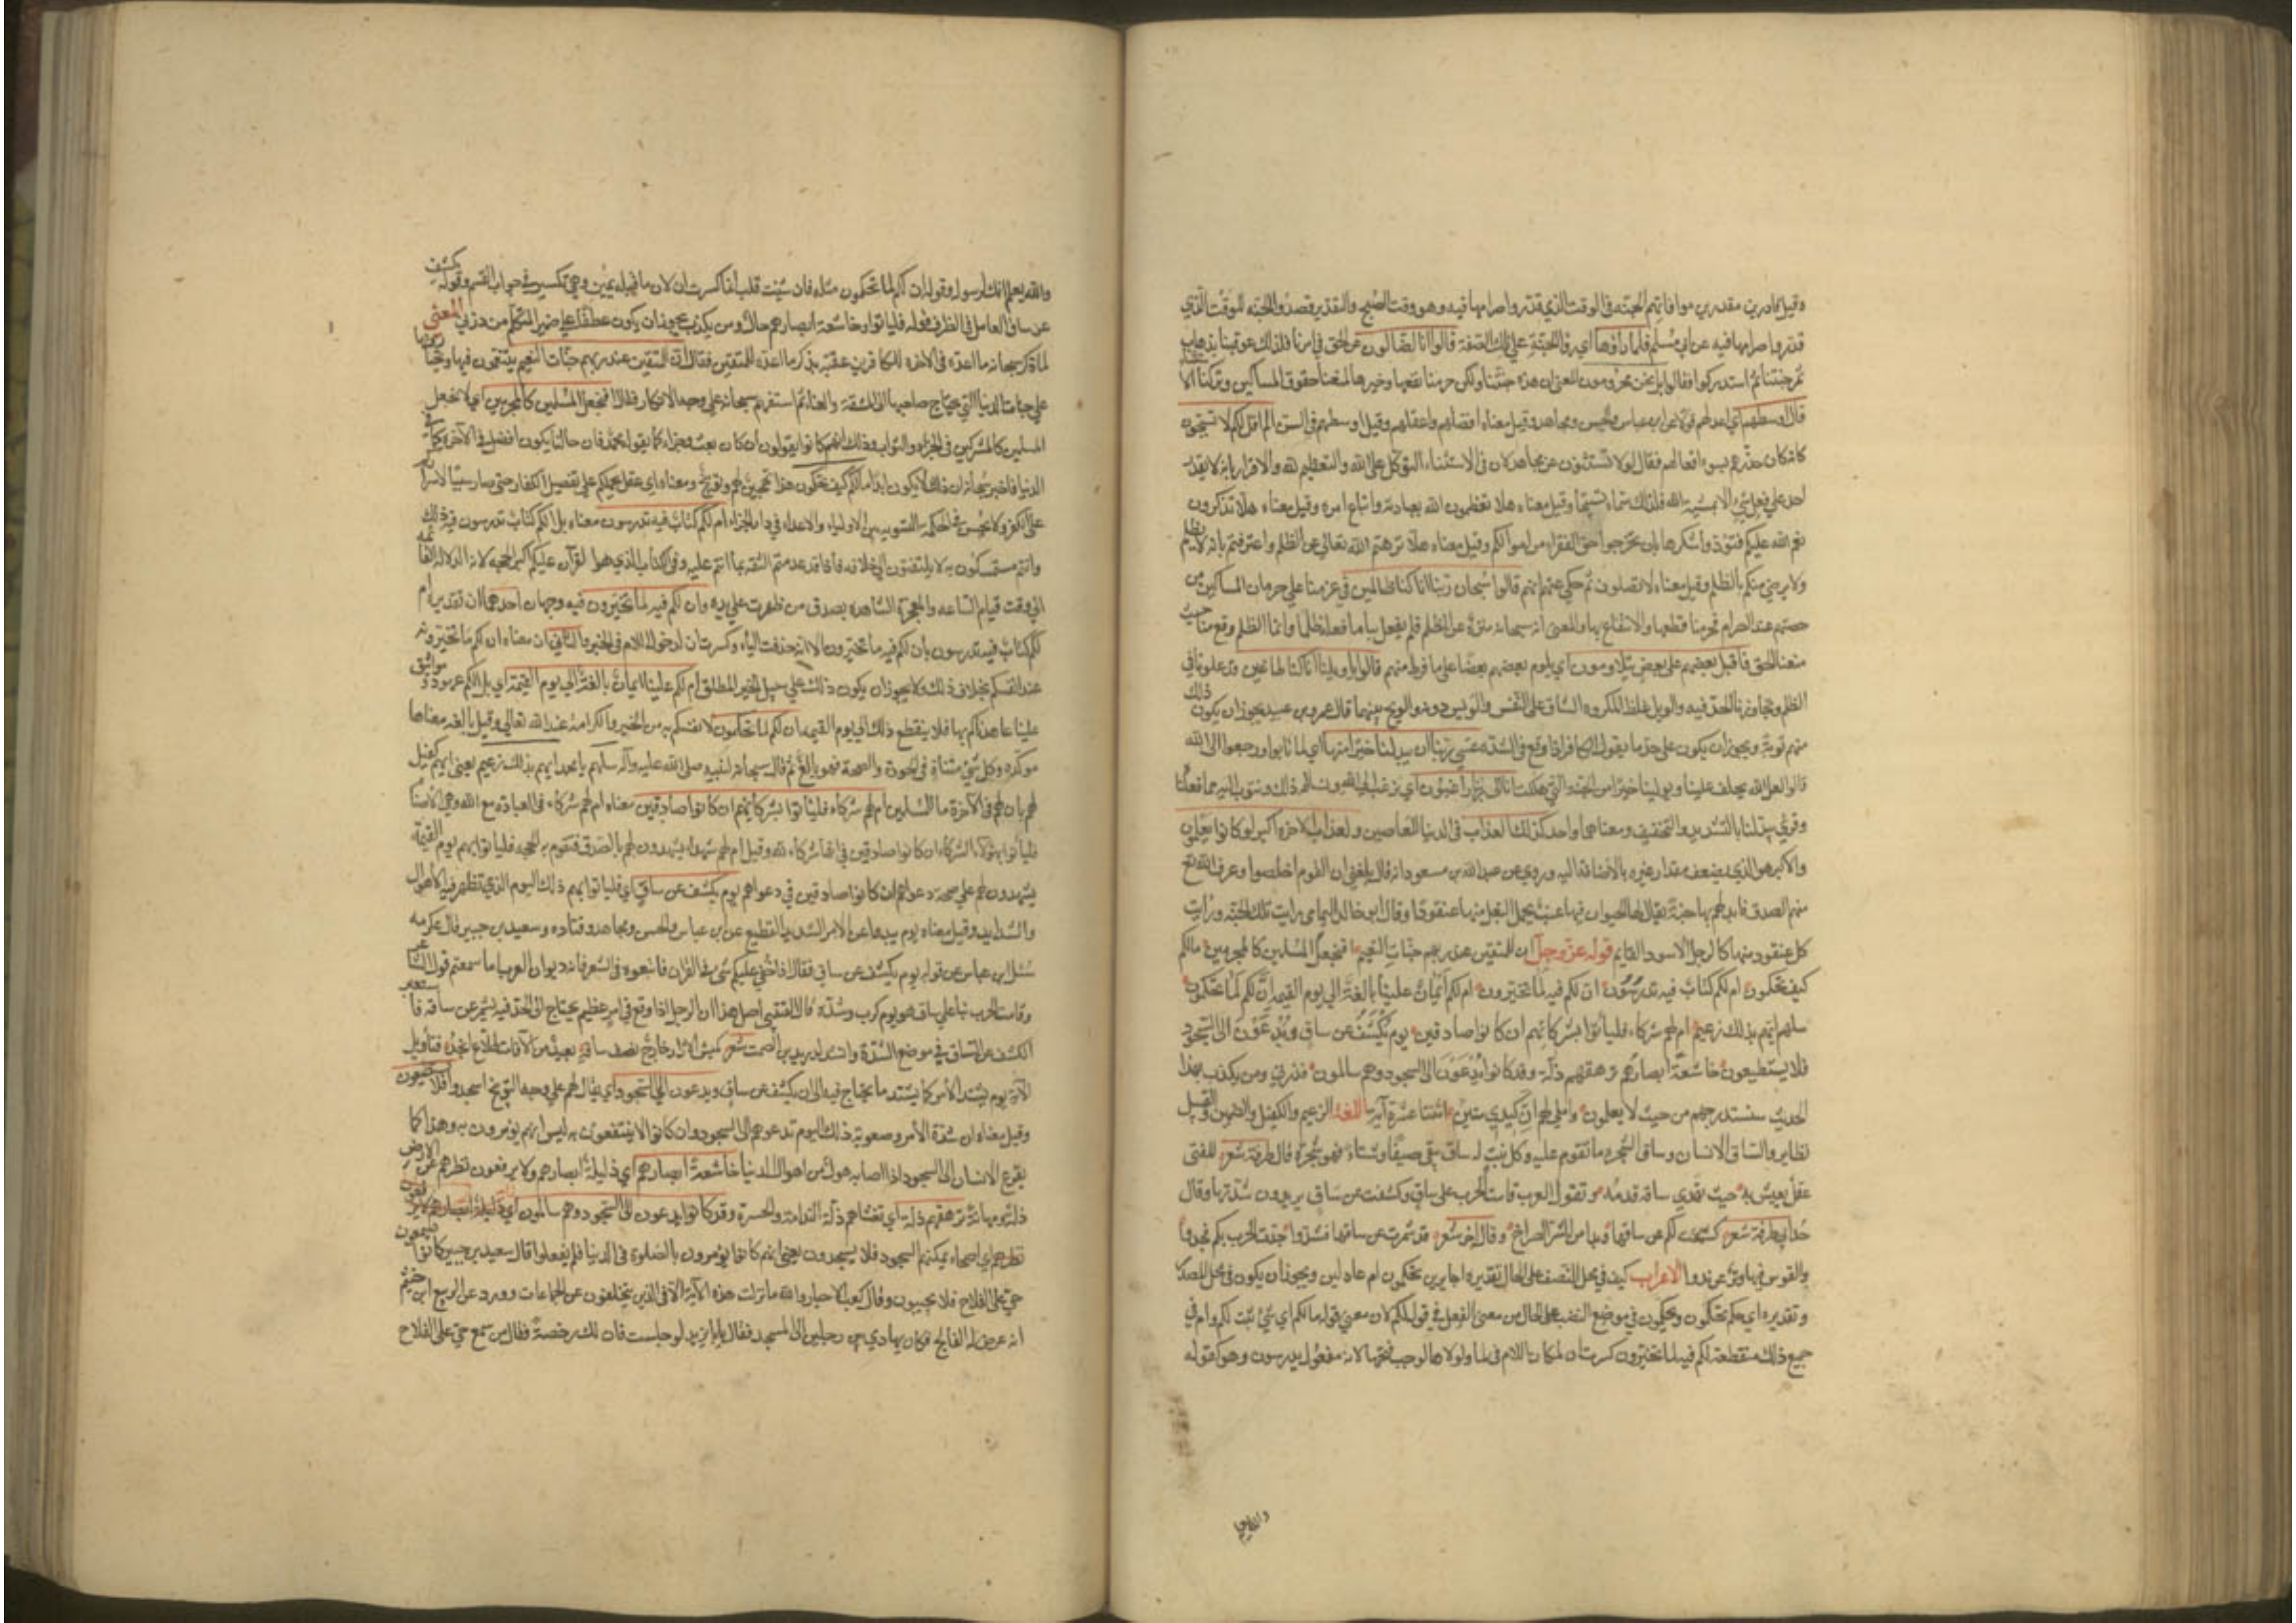 وقيل قادرين مقدرين موافاتهم الجنة في الوقت الذي قدروا صرامها فيه وهو وقت الصبح والتقدير قصدوا الجنة للوقت الذي
قدروا صرامها فيه عن ابي مسلم فلما راوها اي راوا الجنة على تلك الصفة قالوا انا لضالون عن الحق في امرنا فلذلك عوقبنا بذهاب
ثمر جنتنا ثم استدركوا فقالوا بل نحن محرومون والمعنى ان هذه جنتنا ولكن حرمنا نفعها وخيرها لمنعنا حقوق المساكين وتركنا الاستثناء
قال اوسطهم اي اعدلهم قولا عن ابن عباس والحسن ومجاهد وقيل معناه افضلهم واعقلهم وقيل اوسطهم في السن الم اقل لكم لولا تسبحون
كانه كان حذرهم سوء افعالهم فقال لولا تستثنون عن مجاهد لان في الاستثناء التوكل على الله والتعظيم لله والاقرار بانه لا يقدر
احد على فعل شيء الا بمشية الله فلذلك سماه تسبيحا وقيل معناه هلا تعظمون الله بعبادته واتباع امره وقيل معناه هلا تذكرون
نعم الله عليكم فتؤدوا شكرها بان تخرجوا حق الفقراء من اموالكم وقيل معناه هلا نزهتم الله تعالى عن الظلم واعترفتم بانه لا يظلم
ولا يرضى منكم بالظلم وقيل معناه لم لا تصلون ثم حكى عنهم انهم قالوا سبحان ربنا انا كنا ظالمين في عزمنا على حرمان المساكين من
حصتهم عند الصرام فحرمنا قطعها والانتفاع بها والمعنى انه سبحانه منزه عن الظلم فلم يفعل بنا ما فعله ظلما وانما الظلم وقع منا حيث
منعنا الحق فاقبل بعضهم على بعض يتلاومون اي يلوم بعضهم بعضا على ما فرط منهم قالوا يا ويلنا انا كنا طاغين قد علونا في
الظلم وتجاوزنا الحد فيه والويل غلظ المكروه الشاق على النفس والويس دونه والويح بينهما قال عمرو بن عبيد يجوز ان يكون ذلك
منهم توبة ويجوز ان يكون على حد ما يقول الكافر اذا وقع في الشدة عسى ربنا ان يبدلنا خيرا منها اي لما تابوا ورجعوا الى الله
قالوا لعل الله يخلف علينا ويولينا خيرا من الجنة التي هلكت انا الى ربنا راغبون اي نرغب الى الله ونسئله ذلك ونتوب اليه مما فعلنا
وقرئ يبدلنا بالتشديد والتخفيف ومعناهما واحد كذلك العذاب في الدنيا للعاصين ولعذاب الاخرة اكبر لو كانوا يعلمون
والاكبر هو الذي يصغر مقدار غيره بالاضافة اليه وروي عن عبد الله بن مسعود انه قال بلغني ان القوم اخلصوا وعرف الله تع
منهم الصدق فابدلهم بها جنة يقال لها الحيوان فيها عنب يحمل البغل منها عنقودا وقال ابو خالد اليمامي رايت تلك الجنة ورايت
كل عنقود منها كالرجل الاسود القايم قوله عز وجل ان للمتقين عند ربهم جنات النعيم افنجعل المسلمين كالمجرمين مالكم
كيف تحكمون ام لكم كتاب فيه تدرسون ان لكم فيه لما تخيرون ام لكم ايمان علينا بالغة الى يوم القيمة ان لكم لما تحكمون
سلهم ايهم بذلك زعيم ام لهم شركاء فلياتوا بشركائهم ان كانوا صادقين يوم يكشف عن ساق ويدعون الى السجود
فلا يستطيعون خاشعة ابصارهم ترهقهم ذلة وقد كانوا يدعون الى السجود وهم سالمون فذرني ومن يكذب بهذا
الحديث سنستدرجهم من حيث لا يعلمون واملي لهم ان كيدي متين اثنتا عشرة آية اللغة الزعيم والكفيل والضمين والقبيل
نظاير والساق للانسان وساق الشجرة ما تقوم عليه وكل نبت له ساق يبقى صيفا وشتاء فهو شجرة قال طرفة شعر للفتى
عقل يعيش به حيث تهدي ساقه قدمه وتقول العرب قامت الحرب على ساق وكشفت عن ساق يريدون شدتها وقال
جد ابي طرفة شعر كشفت لكم عن ساقها وبدا من الشر الصراح وقال اخر شعر قد شمرت عن ساقها فشدوا وجدت الحرب بكم فجدوا
والقوس فيها وتر عرندوا الاعراب كيف في محل النصب على الحال تقديره اجايرين تحكمون ام عادلين ويجوز ان يكون في محل المصدر
وتقديره اي حكم تحكمون وتحكمون في موضع النصب على الحال من معنى الفعل في قوله لكم لان معنى قوله مالكم اي شيء ثبت لكم وام في
جميع ذلك منقطعة لكم فيه لما تخيرون كسرت ان لمكان اللام في لما ولولاها لوجب فتحها لانه مفعول يدرسون وهو كقوله
والله يعلم
والله يعلم انك لرسوله وقوله ان لكم لما تحكمون مثله فان شئت قلت انما كسرت ان لان ما قبله يمين وهي تكسر في جواب القسم وقوله يكشف
عن ساق العامل في الظرف قوله فلياتوا وخاشعة ابصارهم حال ومن يكذب يجوز ان يكون عطفا على ضمير المتكلم من ذرني المعنى
لما ذكر سبحانه ما اعده في الاخرة للكافرين عقبه بذكر ما اعده للمتقين فقال ان للمتقين عند ربهم جنات النعيم يتنعمون فيها ويختارونها
على جنات الدنيا التي يحتاج صاحبها الى المشقة والعناء ثم استفهم سبحانه على وجه الانكار فقال افنجعل المسلمين كالمجرمين اي لا نجعل
المسلمين كالمشركين في الجزاء والثواب وذلك انهم كانوا يقولون ان كان بعث وجزاء كما يقوله محمد فان حالنا يكون افضل في الآخرة كما في
الدنيا فاخبر سبحانه ان ذلك لا يكون ابدا مالكم كيف تحكمون هذا تهجين لهم وتوبيخ ومعناه اي عقل يحملكم على تفضيل الكفار حتى صار سببا لاصراركم
على الكفر ولا يحسن في الحكمة التسوية بين الاولياء والاعداء في دار الجزاء ام لكم كتاب فيه تدرسون معناه بل الكم كتاب تدرسون فيه ذلك
وانتم متمسكون به لا يلتفتون الى خلافه فاذا قد عدمتم الثقة بما انتم عليه وفي الكتاب الذي هو القرآن عليكم اكبر الحجة لانه الدلالة القائمة
الى وقت قيام الساعة والمعجزة الشاهدة بصدق من ظهرت على يده وان لكم فيه لما تخيرون فيه وجهان احدهما ان تقديره ام
لكم كتاب فيه تدرسون بان لكم فيه ما تخيرون الا انه حذفت الباء وكسرت ان لدخول اللام في الخبر والثاني ان معناه ان لكم ما تخيرونه
عند انفسكم بخلاف ذلك ولا يجوز ان يكون ذلك على سبيل الخبر المطلق ام لكم علينا ايمان بالغة الى يوم القيمة اي بل الكم عهود ومواثيق
علينا عاهدناكم بها فلا ينقطع ذلك الى يوم القيمة ان لكم لما تحكمون لانفسكم به من الخير والكرامة عند الله تعالى وقيل بالغة معناها
موكدة وكل شيء متناه في الجودة والصحة فهو بالغ ثم قال سبحانه لنبيه صلى الله عليه وآله سلهم يا محمد ايهم بذلك زعيم يعنى ايهم كفيل
لهم بان لهم في الآخرة ما للمسلمين ام لهم شركاء فلياتوا بشركائهم ان كانوا صادقين معناه ام لهم شركاء في العبادة مع الله وهي الاصنام
فلياتوا بهؤلاء الشركاء ان كانوا صادقين في انها شركاء لله وقيل ام لهم شهداء يشهدون لهم بالصدق فتقوم به الحجة فلياتوا بهم يوم القيمة
يشهدون لهم على صحة دعواهم ان كانوا صادقين في دعواهم يوم يكشف عن ساق اي فلياتوا بهم ذلك اليوم الذي تظهر فيه الاهوال
والشدايد وقيل معناه يوم يبدوا عن الامر الشديد القطيع عن ابن عباس والحسن ومجاهد وقتاده وسعيد بن جبير قال عكرمه
سئل ابن عباس عن قوله يوم يكشف عن ساق فقال اذا خفي عليكم شيء في القران فابتغوه في الشعر فانه ديوان العرب اما سمعتم قول الشاعر
وقامت الحرب بنا على ساق هو يوم كرب وشدة قال القتيبي اصل هذا ان الرجل اذا وقع في امر عظيم يحتاج الى الجد فيه يشمر عن ساقه فاستعير
الكشف عن الساق في موضع الشدة وانشد لدريد بن الصمت شعر كميش الازار خارج نصف ساقه بعيد من الآفات طلاع انجد فتاويل
الآية يوم يشتد الامر كما يشتد ما يحتاج فيه الى ان يكشف عن ساق ويدعون الى السجود اي يقال لهم على وجه التوبيخ اسجدوا فلا يستطيعون
وقيل معناه ان شدة الامر وصعوبة ذلك اليوم تدعوهم الى السجود وان كانوا لا ينتفعون به ليس انهم يؤمرون به وهذا كما
يفزع الانسان الى السجود اذا اصابه هول من اهوال الدنيا خاشعة ابصارهم اي ذليلة ابصارهم ولا يرفعون نظرهم عن الارض
ذلة ومهانة ترهقهم ذلة اي تغشاهم ذلة الندامة والحسرة وقد كانوا يدعون الى السجود وهم سالمون اي ذليلة ابصارهم لا يرفعون
نظرهم اي اصحاء يمكنهم السجود فلا يسجدون يعني انهم كانوا يؤمرون بالصلوة في الدنيا فلم يفعلوا قال سعيد بن جبير كانوا يسمعون
حي على الفلاح فلا يجيبون وقال كعب الاحبار والله ما نزلت هذه الآية الا في الذين يتخلفون عن الجماعات وورد عن الربيع ابن خيثم
انه عرض له الفالج فكان يهادي بين رجلين الى المسجد فقال له يا ابا يزيد لو جلست فان لك رخصة فقال من سمع حي على الفلاح